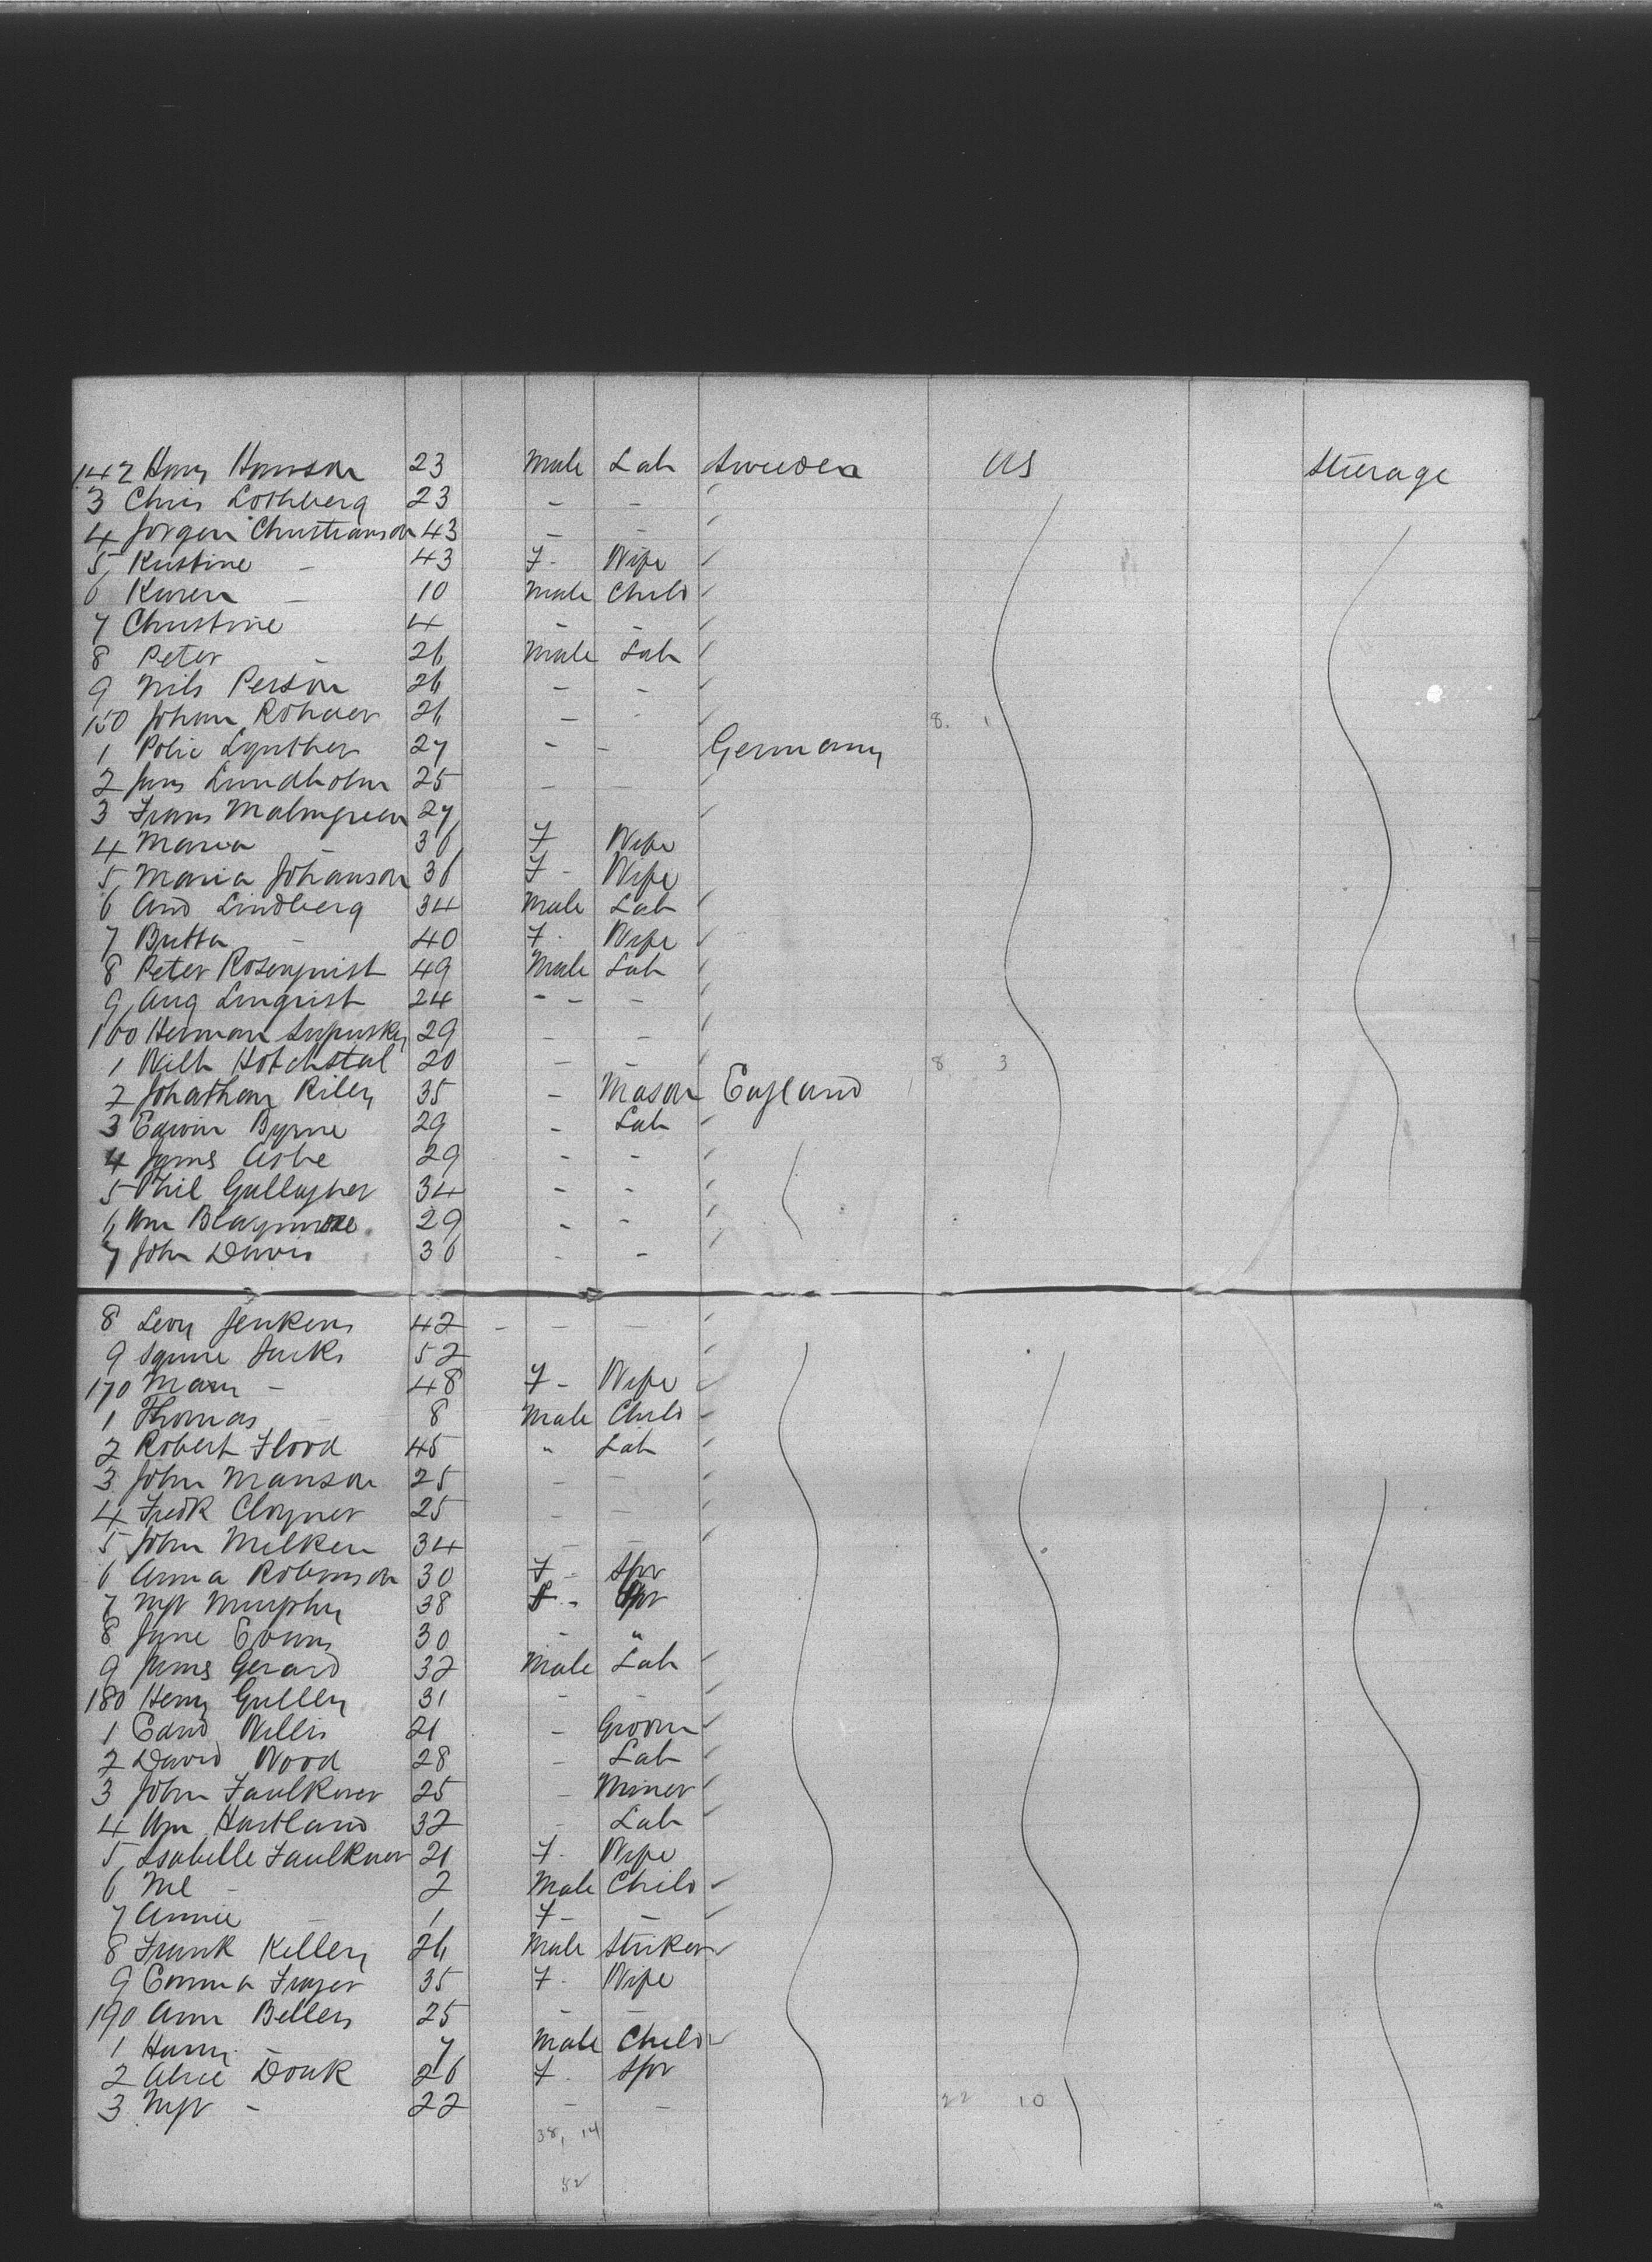 142 Hans Hanson 23 Male Lab Sweden US Steerage
3 Chris Lothberg 23 - -
4 Jorgen Christianson 43 - -
5 Kristine - 43 F - Wife
6 Karen - 10 Male Child
7 Christine 4 - -
8 Peter - 26 Male Lab
9 Nils Person 26 - -
150 Johan Rohder 26 - - 8. 1
1 27 - - Germany
2 Jens Lundholm 25 - -
3 Frans Malmgreen 27
4 Maria - 36 F Wife
5 Maria Johanson 36 F - Wife
6 And Lindberg 34 Male Lab
7 Britta - 40 F - Wife
8 Peter Rosenquist 49 Male Lab
9 Aug Linqrist 24 - - -
160 Herman 29 - -
1 Wilh Hotchstal 20 - - 8 3
2 Jonathan Riley 35 - Mason England
3 Edwin Byrne 29 - Lab
4 James Ashe 29 - -
5 Phil Gallagher 34 - -
6 Wm Blaymore 29 - -
7 John Davis 36 - -
8 Levy Jenkens 42 - - -
9 Squire Jacks 52
170 Mary - 48 F - Wife
1 Thomas - 8 Male Child
2 Robert Flood 45 " Lab
3 John Manson 25 - -
4 Fredk Cloyner 25 - -
5 John Milken 34 - -
6 Anna Robinson 30 F - Spr
7 Mgt Murphy 38 F - Spr
8 Jane Evans 30 - "
9 James Gerard 32 Male Lab
180 Henry Gulley 31 - -
1 Edwd Willis 21 - Groom
2 David Wood 28 - Lab
3 John Faulkner 25 - Miner
4 Wm Hartland 32 - Lab
5 Isabelle Faulkner 21 F - Wife
6 - 2 Male Child
7 Annie - 1 F - -
8 Frank Killey 26 Male Striker
9 Emma Frazer 35 F - Wife
190 Ann Bellers 25 - -
1 Harry - 7 Male Child
2 Alice Doak 26 F - Spr
3 Mgt - 22 - - 22 10
38, 14
52